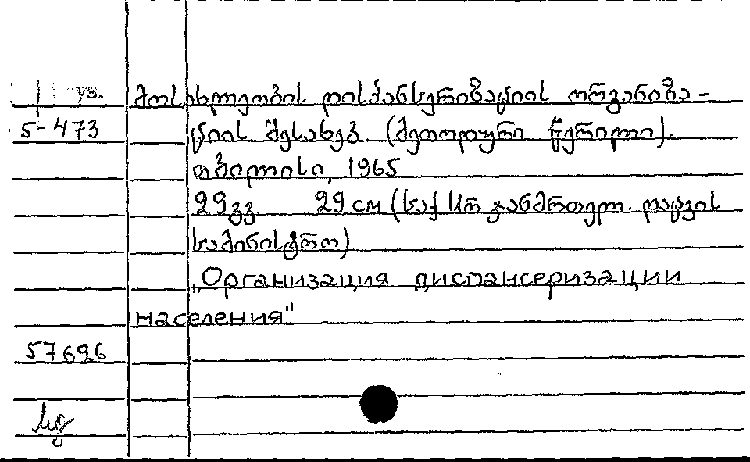 მოსახლეობის დისპანსერიზაციის ორგანიზა-
5-473 ციის შესახებ. (მეთოდური წერილი).
თბილისი, 1965
29გვ 29 см (საქ სსრ ჯანმრთელ. დაცვის
სამინისტრო)
„Организация диспансеризации
населения"
57626